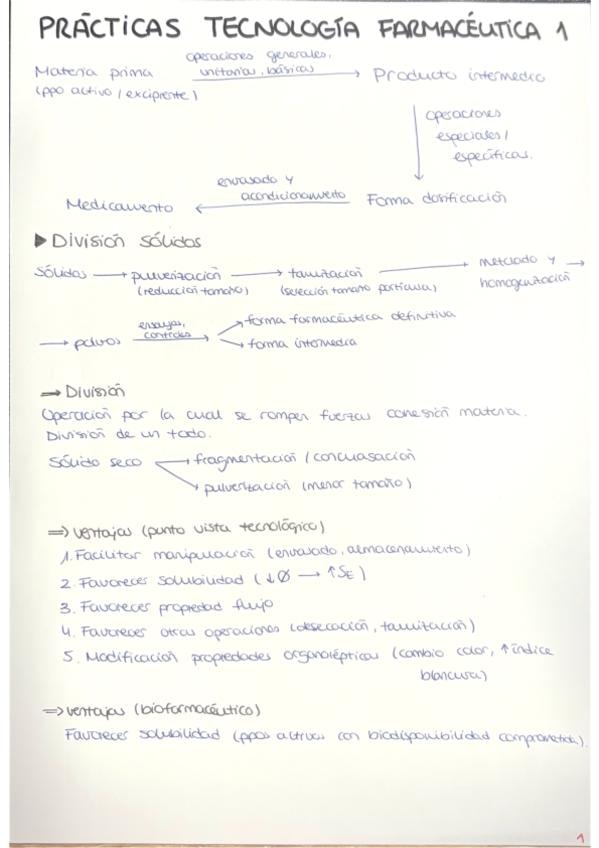 PRÁCTICAS TECNOLOGÍA FARMACÉUTICA 1
operaciones generales,
Materia prima unitarias, básicas → Producto intermedio
(ppo activo / excipiente)
operaciones
especiales /
específicas.
envasado y
Medicamento ← acondicionamiento Forma dosificación
▶ División sólidos
Sólidos → pulverización → tamización → mezclado y →
(reducción tamaño) (selección tamaño partícula) homogenización
→ polvos ensayos, controles → forma farmacéutica definitiva
→ forma intermedia
→ División
Operación por la cual se rompen fuerzas conexión materia.
División de un todo.
Sólido seco → fragmentación / concuasación
→ pulverización (menor tamaño)
⇒ ventajas (punto vista tecnológico)
1. Facilitar manipulación (envasado, almacenamiento)
2. Favorecer solubilidad (↓Ø → ↑SE)
3. Favorecer propiedad flujo
4. Favorecer otras operaciones (desecación, tamización)
5. Modificación propiedades organolépticas (cambio color, ↑ índice
blancura)
⇒ ventajas (biofarmacéutico)
Favorecer solubilidad (ppos activos con biodisponibilidad comprometida).
1